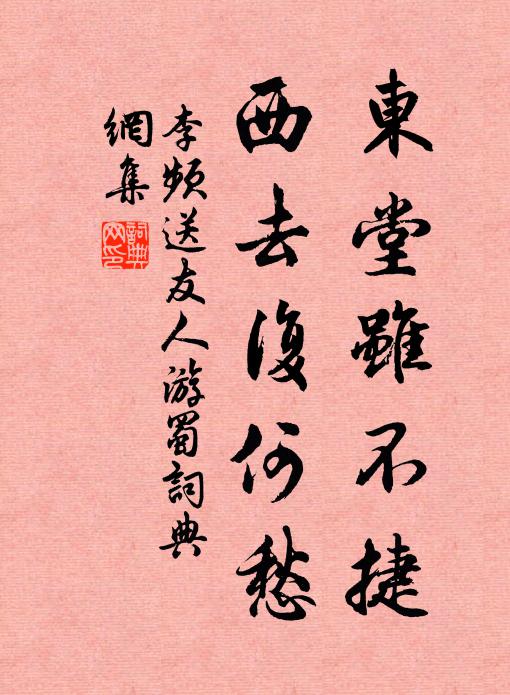 東堂雖不捷
西去復何愁
李頻送友人游蜀詞典
網集
詞典
网印